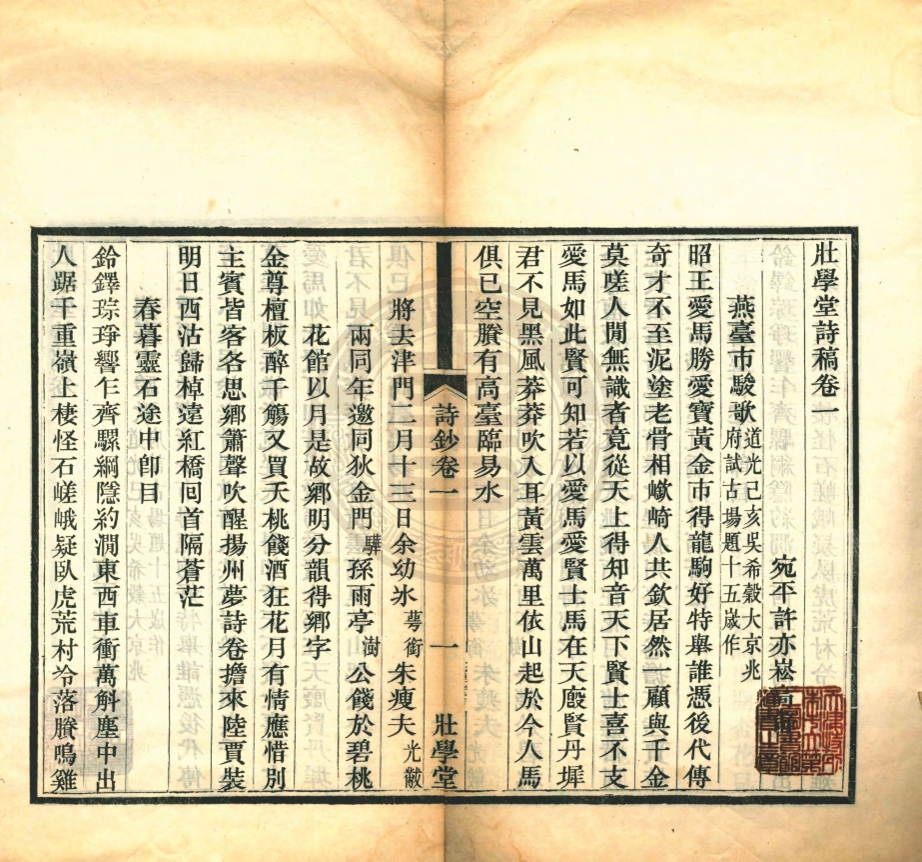 壯學堂詩稿卷一
宛平許亦崧
燕臺市駿歌道光己亥吳希穀大京兆府試古場題十五歲作
昭王愛馬勝愛寶黃金市得龍駒好特舉誰憑後代傳
奇才不至泥塗老骨相嶔崎人共欽居然一顧與千金
莫嗟人閒無識者竟從天上得知音天下賢士喜不支
愛馬如此賢可知若以愛馬愛賢士馬在天廄賢丹墀
君不見黑風莽莽吹入耳黃雲萬里依山起於今人馬
俱已空賸有高臺臨易水
詩鈔卷一
一
壯學堂
將去津門二月十三日余幼冰蕚銜朱瘦夫光黻
兩同年邀同狄金門驊孫雨亭澍公餞於碧桃
花館以月是故鄉明分韻得鄉字
金尊檀板醉千觴又買夭桃餞酒狂花月有情應惜別
主賓皆客各思鄉簫聲吹醒揚州夢詩卷擔來陸賈裝
明日西沽歸棹遠紅橋囘首隔蒼茫
春暮靈石途中卽目
鈴鐸琮琤響乍齊騾綱隱約澗東西車衝萬斛塵中出
人踞千重嶺上棲怪石嵯峨疑臥虎荒村冷落賸鳴雞